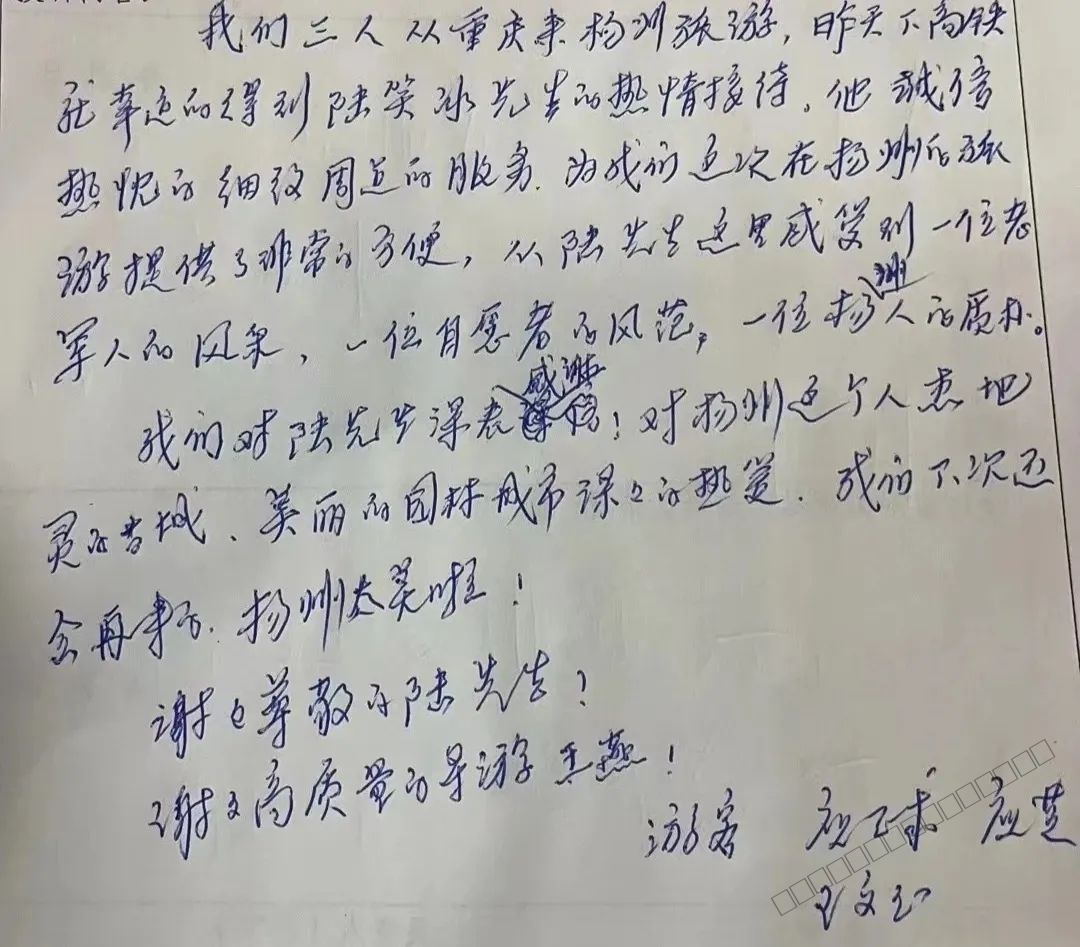 我们三人从重庆来扬州旅游，昨天下高铁
就幸运的得到陆笑冰先生的热情接待。他诚恳
热忱的细致周道的服务.为我们这次在扬州的旅
游提供了非常的方便，从陆先生这里感受到一位老
军人的风采，一位自愿者的风范，一位扬州人的质朴。
我们对陆先生深表感谢！对扬州这个人杰地
灵的古城、美丽的园林城市深深的热爱.我们下次还
会再来的.扬州太美啦！
谢谢尊敬的陆先生！
谢谢高质量的导游王燕！
游客 应
王文